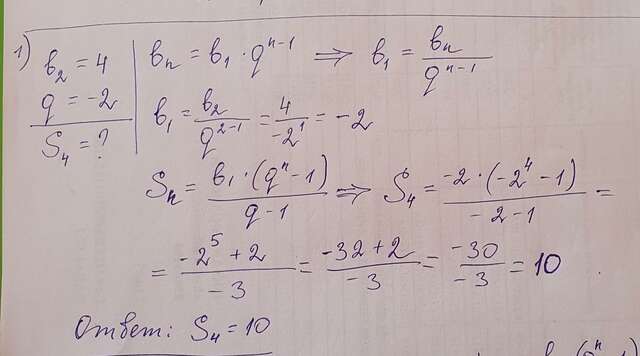 1) b₂ = 4
q = -2
S₄ = ?
bₙ = b₁ · qⁿ⁻¹ ⇒ b₁ = bₙ / qⁿ⁻¹
b₁ = b₂ / q²⁻¹ = 4 / -2¹ = -2
Sₙ = b₁ · (qⁿ - 1) / q - 1 ⇒ S₄ = -2 · (-2⁴ - 1) / -2 - 1 =
= -2⁵ + 2 / -3 = -32 + 2 / -3 = -30 / -3 = 10
Ответ: S₄ = 10